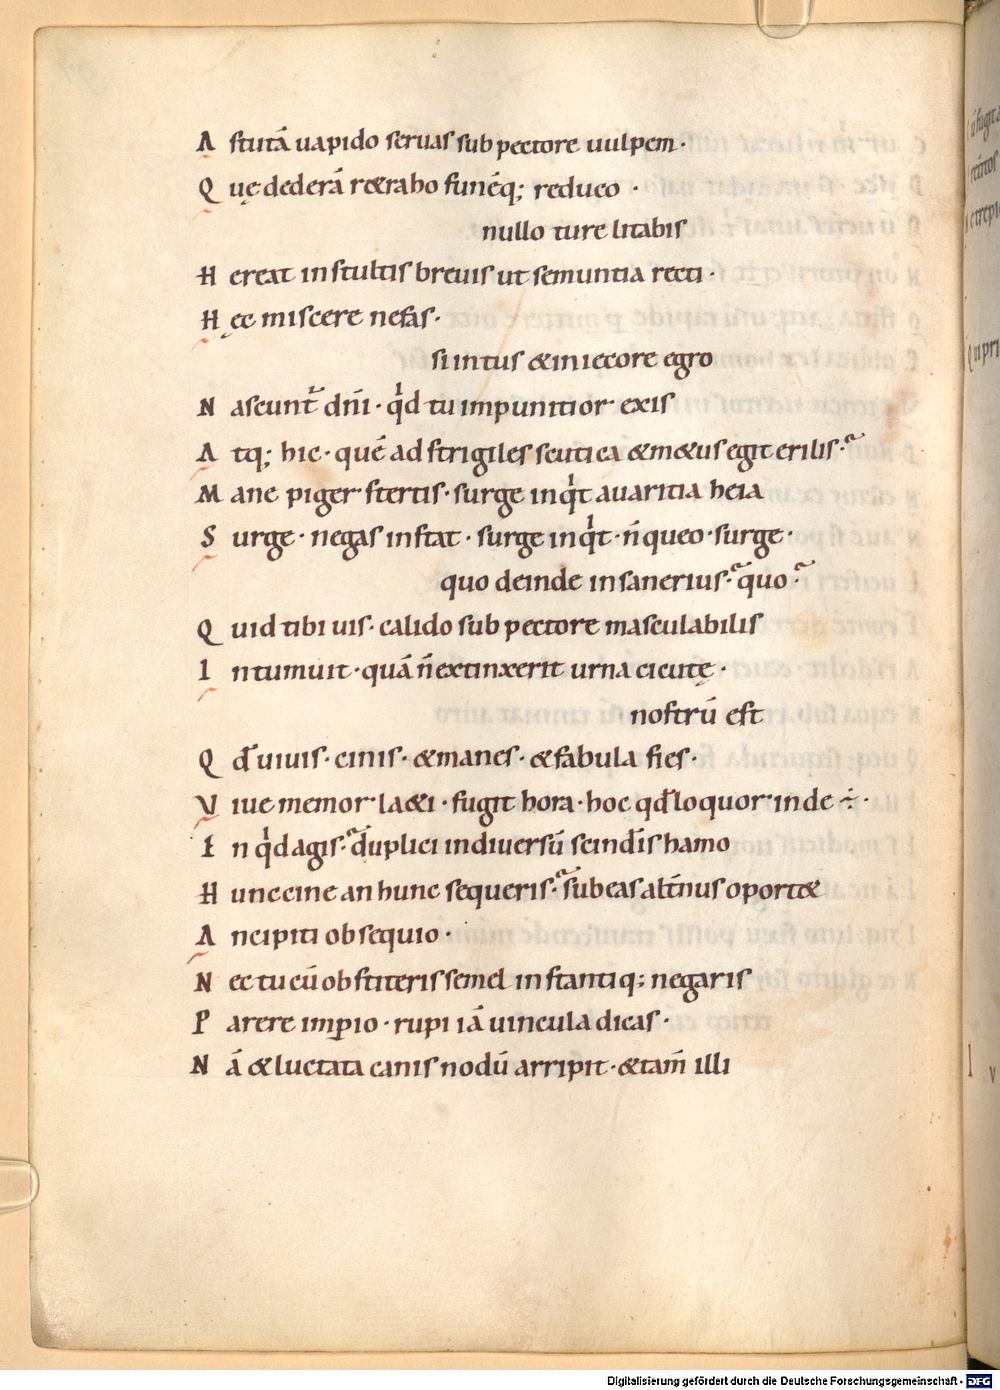 A stutā uapido seruas sub pectore uulpem·
Q uę dederā ret&rabo funēq; reduco ·
nullo ture litabis
H ereat instultis breuis ut semuntia recti ·
H ęc miscere nefas·
si intus & in iecore egro
N ascunt͛ dn̄i · qͥd tu impunitior exis
A tq; hic · quē ad strigiles scutica & m&us egit erilis·
M ane piger stertis · surge inqͥt auaritia heia
S urge · negas instat · surge inqͥt · n̄ queo · surge·
quo deinde insanerius· quo ·
Q uid tibi uis· calido sub pectore mascula bilis
I ntumuit · quā n̄ extinxerit urna cicutę ·
nostrū est
Q đ uiuis· cinis· & manes· & fabula fies·
V iue memor l&i · fugit hora · hoc qđ loquor inde ÷ ·
I n qͥd agis· duplici in diuersū scinderis hamo
H unccine an hunc sequeris· subeas alt̄nus oport&
A ncipiti obsequio ·
N ec tu cū obstiteris semel instantiq; negaris
P arere imꝑio · rupi iā uincula dicas·
N ā & luctata canis nodū arripit · & tam̄ illi
Digitalisierung gefördert durch die Deutsche Forschungsgemeinschaft - DFG